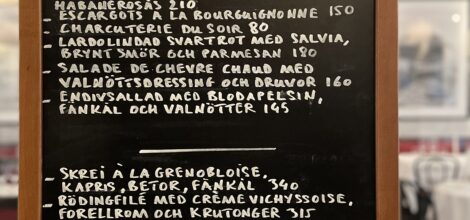 HABANEROSÅS 210
- ESCARGOTS À LA BOURGUIGNONNE 150
- CHARCUTERIE DU SOIR 80
- LARDOLINDAD SVARTROT MED SALVIA,
BRYNT SMÖR OCH PARMESAN 180
- SALADE DE CHEVRE CHAUD MED
VALNÖTTSDRESSING OCH DRUVOR 160
- ENDIVSALLAD MED BLODAPELSIN,
FÄNKÅL OCH VALNÖTTER 145
- SKREI À LA GRENOBLOISE,
KAPRIS, BETOR, FÄNKÅL 340
- RÖDINGFILÉ MED CRÈME VICHYSSOISE,
FORELLROM OCH KRUTONGER 315